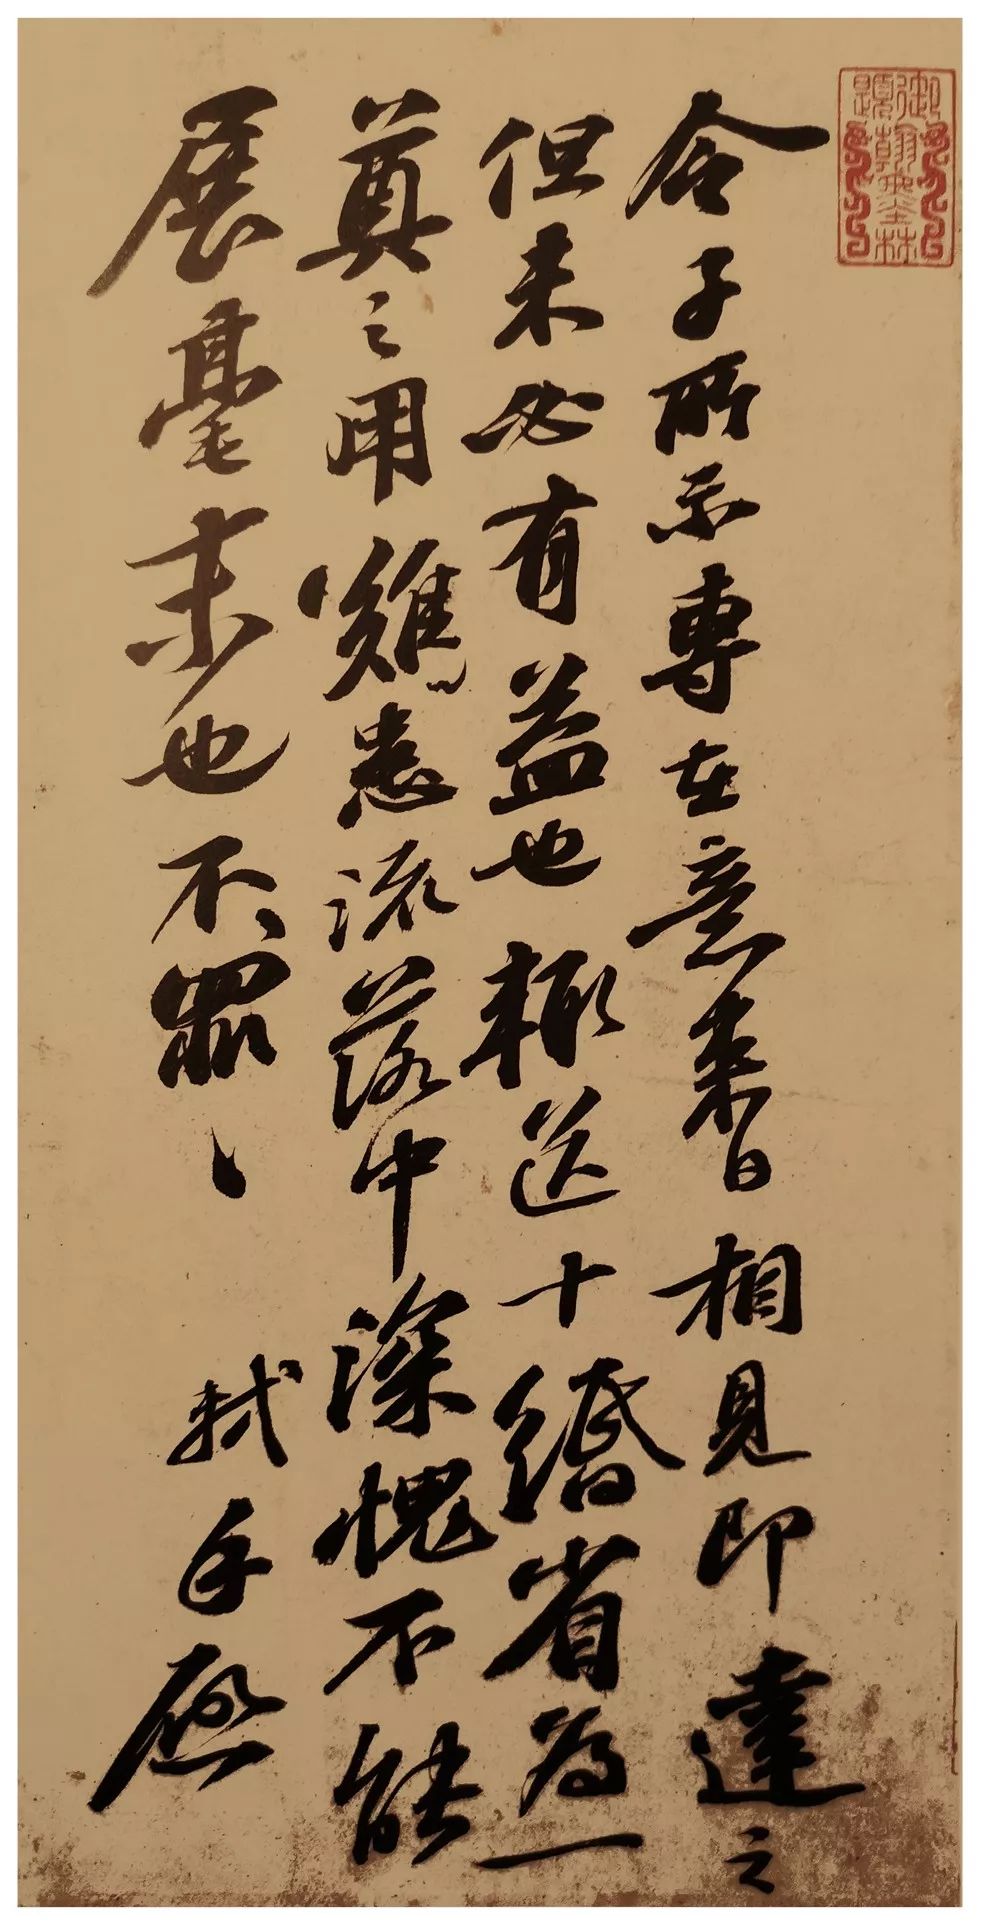 御題翰墨林
令子所示專在意来日相見即達之
但未必有益也輒送十緡省為一
奠之用難患流落中深愧不能
展毫末也不〻罪〻 軾手啟